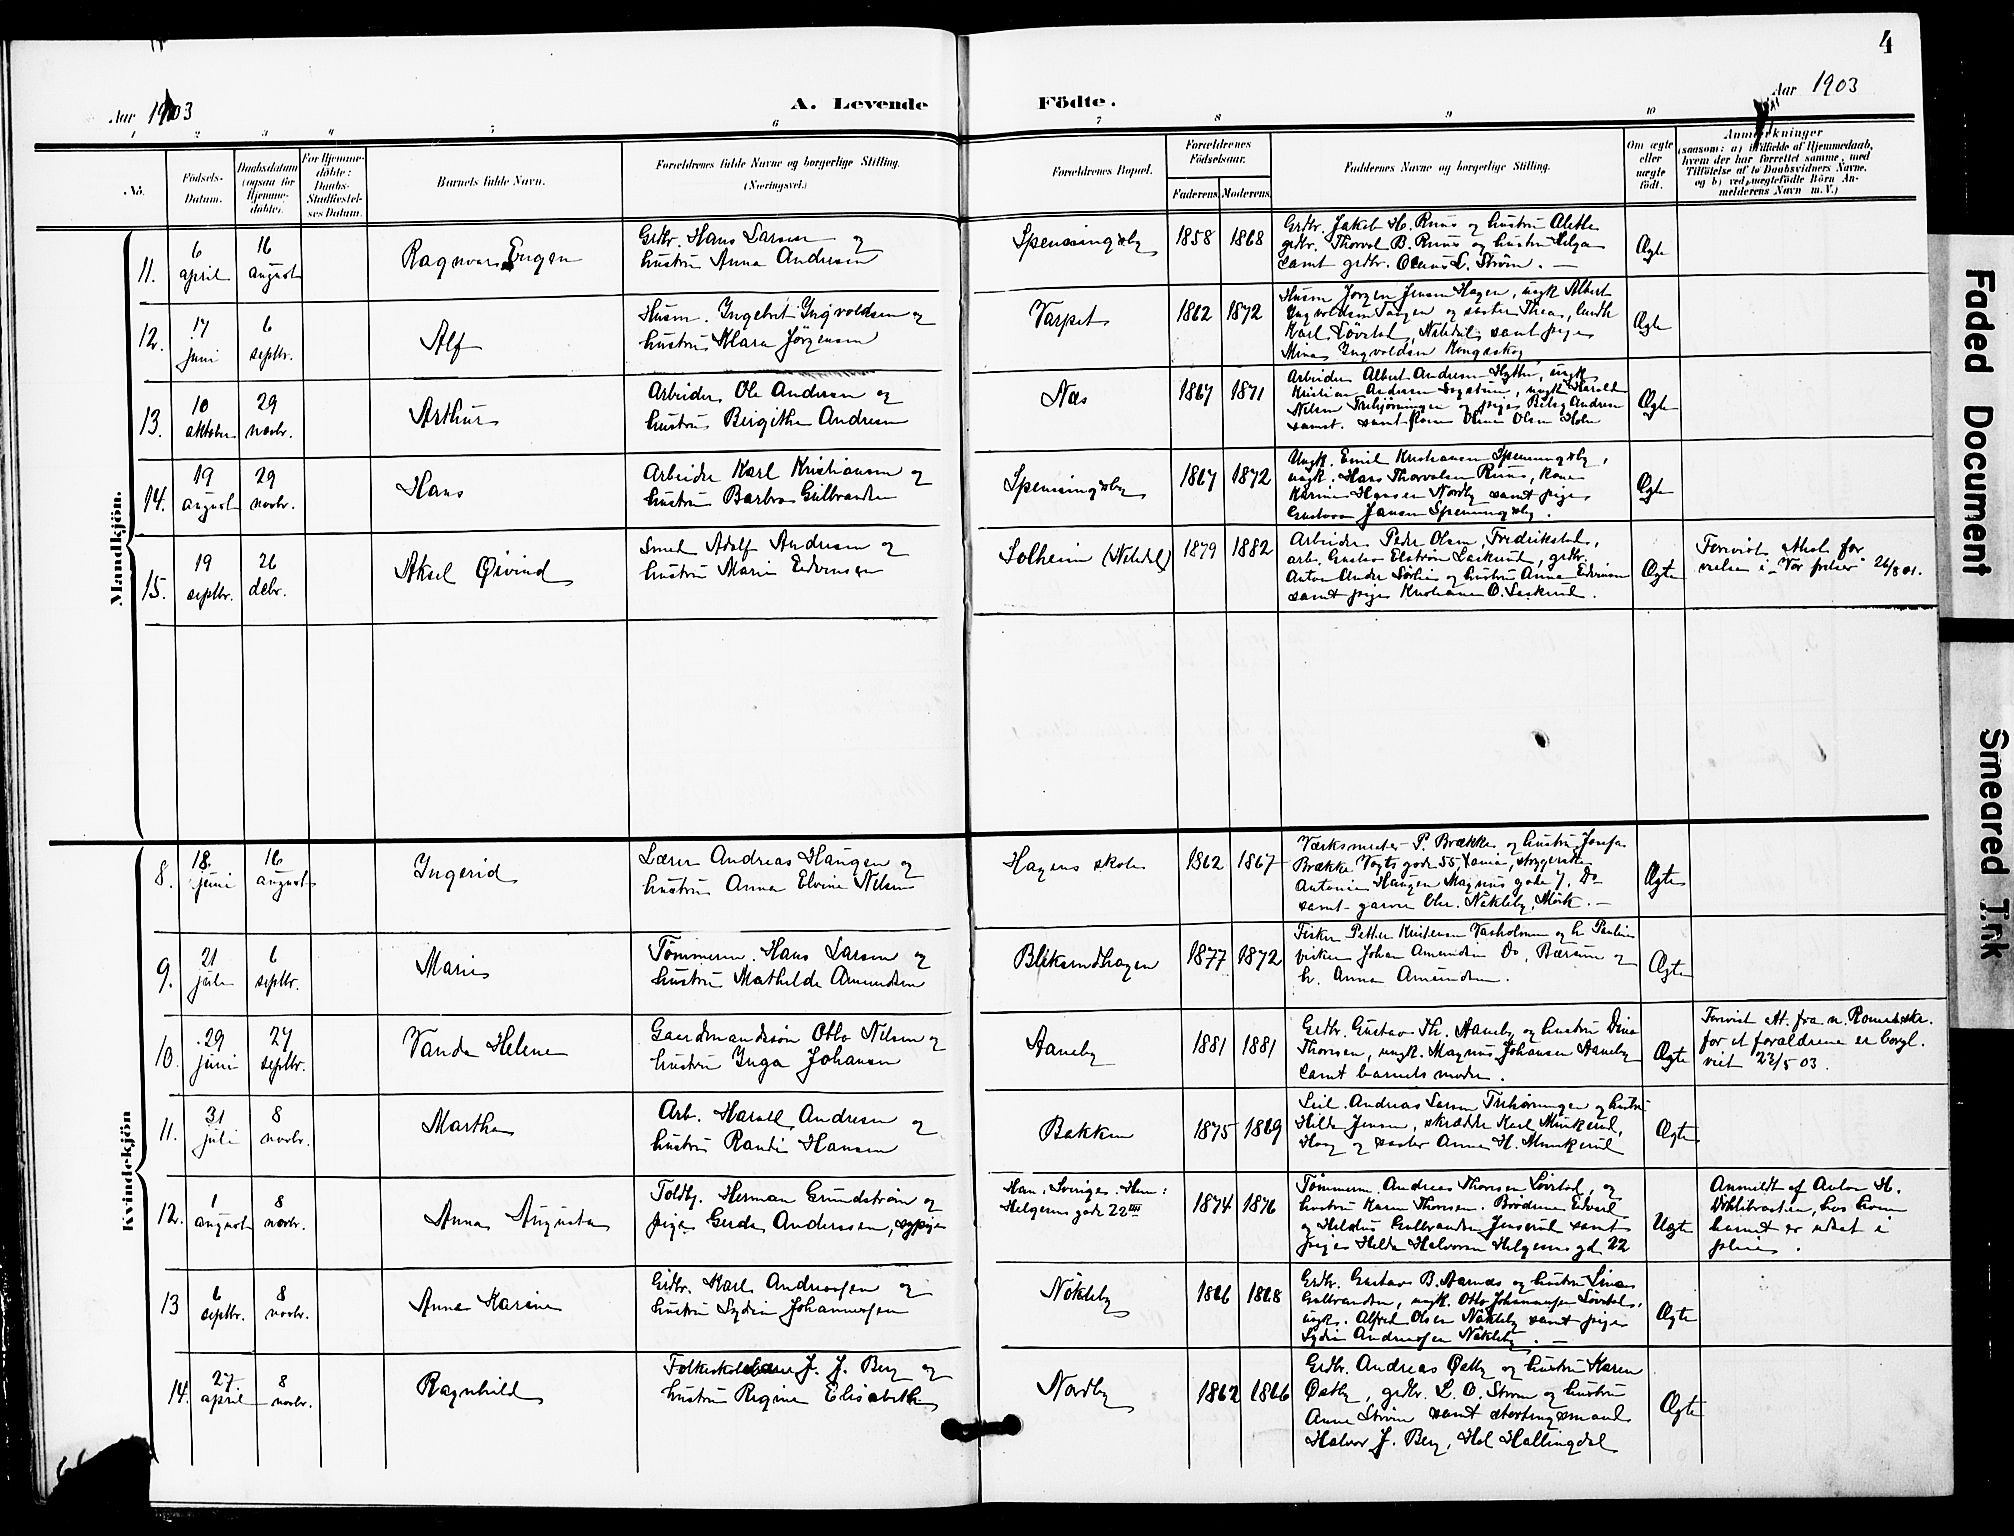 4
Aar 1903
A. Levende Födte.
Aar 1903
1 2 3 4 5 6 7 8 9 10
No.
Födsels-Datum.
Daabsdatum (ogsaa for Hjemme-döbte).
For Hjemme-döbte: Daabs-Stadfæstel-ses Datum.
Barnets fulde Navn.
Forældrenes fulde Navne og borgerlige Stilling. (Næringsvei.)
Forældrenes Bopæl.
Forældrenes Födselsaar.
Faderens. Moderens.
Faddernes Navne og borgerlige Stilling.
Om ægte eller uægte födt.
Anmærkninger
(saasom: a) i Tilfælde af Hjemmedaab,
hvem der har forrettet samme, med
Tilföielse af to Daabsvidners Navne,
og b) ved uægtefödte Börn An-
melderens Navn m. V.)
Mandkjön.
11. 6 april 16 august Ragnvar Eugen
Grdbr. Hans Larsen og
hustru Anna Andersen
Spenningsby 1858 1868
Grdbr. Jakob H. Ruus og hustru Alethe
grdbr. Thorval B. Ruus og hustru Helga
samt grdbr. Olaus L. Strøm. —
Ægte
12. 17 juni 6 septbr. Alf
Husm. Ingebret Ingvoldsen og
hustru Mara Jörgensen
Varpet 1862 1872
Husm Jørgen Jensen Hagen, ungk Albert
Ingvoldsen Tangen og søster Thea,
Karl Løvstad, samt pige
Mina Ingvoldsen Kongsskog
Ægte
13. 10 oktober 29 novbr. Arthur
Arbeider Ole Andersen og
hustru Bergithe Andersen
Næs 1867 1871
Arbeider Albert Andersen Hytten, ungk
Kristian Andersen, ungk Harald
Nilsen Trehjørningen og pige Betsy Andersen
samst. samt kone Oline Olsen Holm
Ægte
14. 19 august 29 novbr. Hans
Arbeider Karl Kristiansen og
hustru Barbro Gulbrandsen
Spenningsby 1867 1872
Ungk. Emil Kristiansen Spenningsby,
ungk. Hans Thorvalsen Ruus, kone
Karine Hansen Nordby samt pige
Gustava Jansen Spenningsby.
Ægte
15. 19 septbr. 26 debr. Aksel Øivind
Smed Adolf Andersen og
hustru Marie Edvinsen
Solheim (Nitedal) 1879 1882
Arbeider Peder Olsen, Fredrikstad,
arb. Gustav Elstrøm Laskerud, grdbr.
Anton Andr. Sørlie og hustru Anna Edvinsen
samt pige Kristiane O. Laskerud.
Ægte
Forevist Attest for
vielsen i "Vor frelser" 26/8 01.
Kvindekjön
8. 18. juni 16 august Ingerid
Lærer Andreas Haugen og
hustru Anna Elvine Nilsen
Hagens skole 1862 1867
Værksmester P. Brække og hustru Josefa
Brække Vogts gade 55, Xania, strygerske
Antonie Haugen Magnus gade 7, Do
samt garver Olse. Nökleby, Mörk. —
Ægte
9. 21 juli 6 septbr. Marie
Tømmerm. Hans Larsen og
hustru Mathilde Amundsen
Bliksrudhagen 1877 1872
Fisker Petter Kristensen Vasholmen og h. Pauline
virker Johan Amundsen Do, Bærum og
h. Anna Amundsen.
Ægte
10. 29 juni 27 septbr. Vanda Helene
Gaardmandssøn Otto Nilsen og
hustru Inga Johansen
Aaneby 1881 1881
Grdbr. Gustav Th. Aaneby og hustru Dina
Thorsen, ungk. Magnus Johansen Aaneby
samt barnets moder.
Ægte
Forevist att. fra n. Romerikes skr.
for at forældrene er borgl.
viet 23/5 03.
11. 31 juli 8 novbr. Martha
Arb. Harald Andersen og
hustru Randi Hansen
Bakken 1875 1869
Leil. Andreas Larsen Trehørningen og hustru
Hilda Jensen, skrædder Karl Munkerud,
Haug og søster Anna H. Munkerud
Ægte
12. 1 august 8 novbr. Anna Augusta
Toldbj. Herman Grundstrøm og
pige Gerda Anderssen, sypige
Han: Sveriges. Hun:
Helgesens gade 22 III
1874 1876
Tømmerm Andreas Thorsen Løvstad, og
hustru Karen Thorsen. Brødrene Edvard
og Heldus Gulbrandsen Jenserud samt
pige Hilda Halvorsen Helgesens gd 22
Uægte
Anmeldt af Anton H.
Döhlibraaten, hos hvem
barnet er udsat i
pleie.
13 6 septbr. 8 novbr. Anna Karine
Grdbr. Karl Andreassen og
hustru Lydia Johannessen
Nökleby 1866 1868
Grdbr. Gustav B. Aarnæs og hustru Lina
Gulbrandsen, ungk. Otto Johannessen Løvstad,
ungk. Alfred Olsen Nökleby samt pige
Lydia Andreassen Nökleby. —
Ægte
14. 27 april 8 novbr. Ragnhild
Folkeskolelærer J. J. Berg og
hustru Regine Elisabeth
Nordby 1862 1866
Grdbr. Andreas Østby og hustru Karen
Østby, grdbr. L. O. Strøm og hustru
Anna Strøm samt stortingsmand
Halvor J. Berg, Hol Hallingdal
Ægte
Faded Document
Smeared Ink